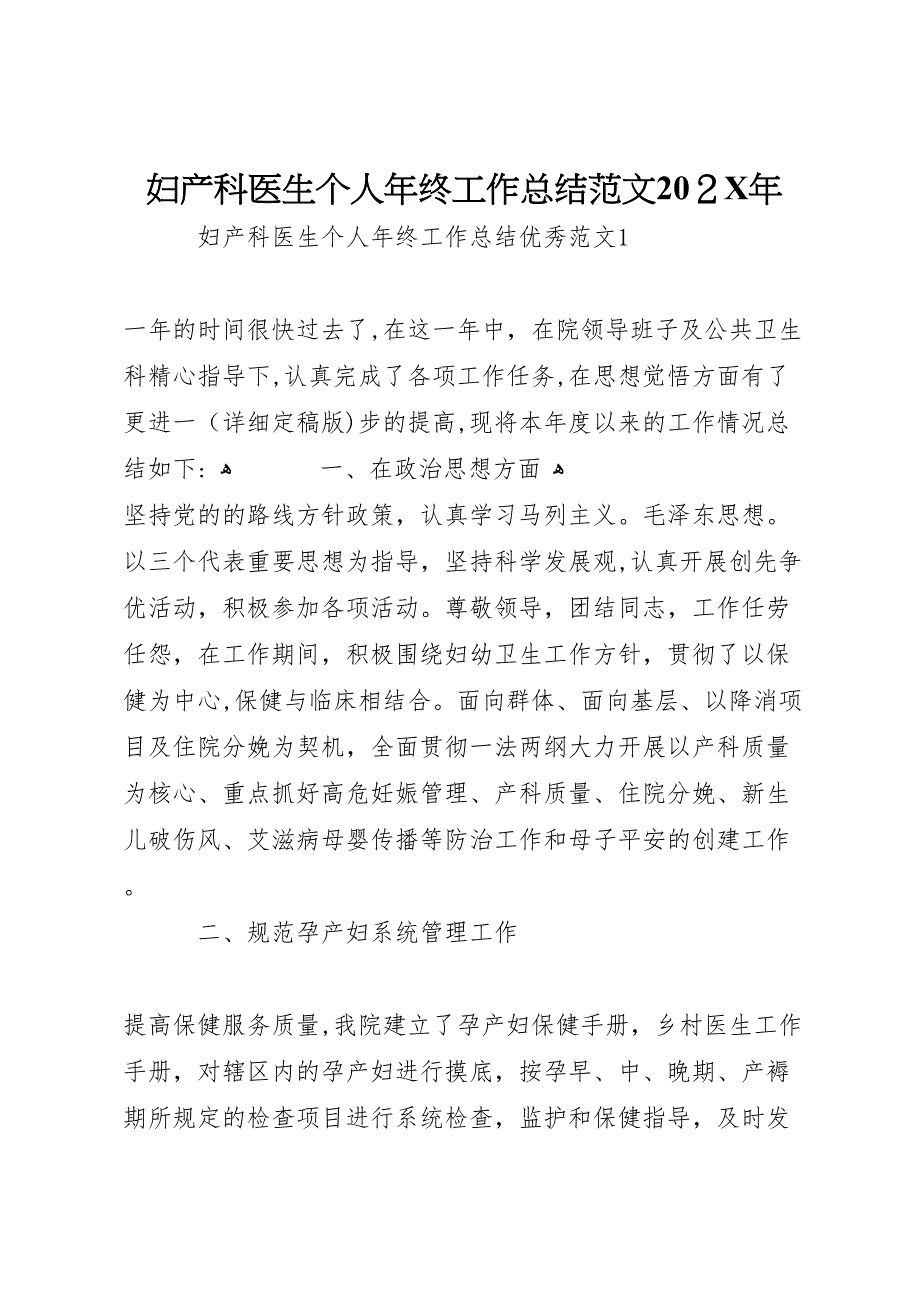 妇产科医生个人年终工作总结范文20２X年
妇产科医生个人年终工作总结优秀范文1
一年的时间很快过去了,在这一年中，在院领导班子及公共卫生
科精心指导下,认真完成了各项工作任务,在思想觉悟方面有了
更进一（详细定稿版)步的提高,现将本年度以来的工作情况总
结如下: ﻫ 一、在政治思想方面 ﻫ
坚持党的的路线方针政策，认真学习马列主义。毛泽东思想。
以三个代表重要思想为指导，坚持科学发展观,认真开展创先争
优活动，积极参加各项活动。尊敬领导，团结同志，工作任劳
任怨，在工作期间，积极围绕妇幼卫生工作方针，贯彻了以保
健为中心,保健与临床相结合。面向群体、面向基层、以降消项
目及住院分娩为契机，全面贯彻一法两纲大力开展以产科质量
为核心、重点抓好高危妊娠管理、产科质量、住院分娩、新生
儿破伤风、艾滋病母婴传播等防治工作和母子平安的创建工作
。
二、规范孕产妇系统管理工作
提高保健服务质量,我院建立了孕产妇保健手册，乡村医生工作
手册，对辖区内的孕产妇进行摸底，按孕早、中、晚期、产褥
期所规定的检查项目进行系统检查，监护和保健指导，及时发